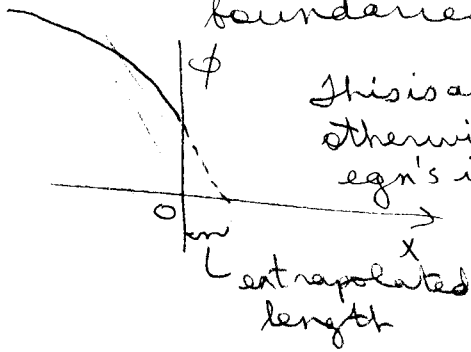 boundaries
φ
This is a
otherwi
eqn's i
O
X
extrapolated
length